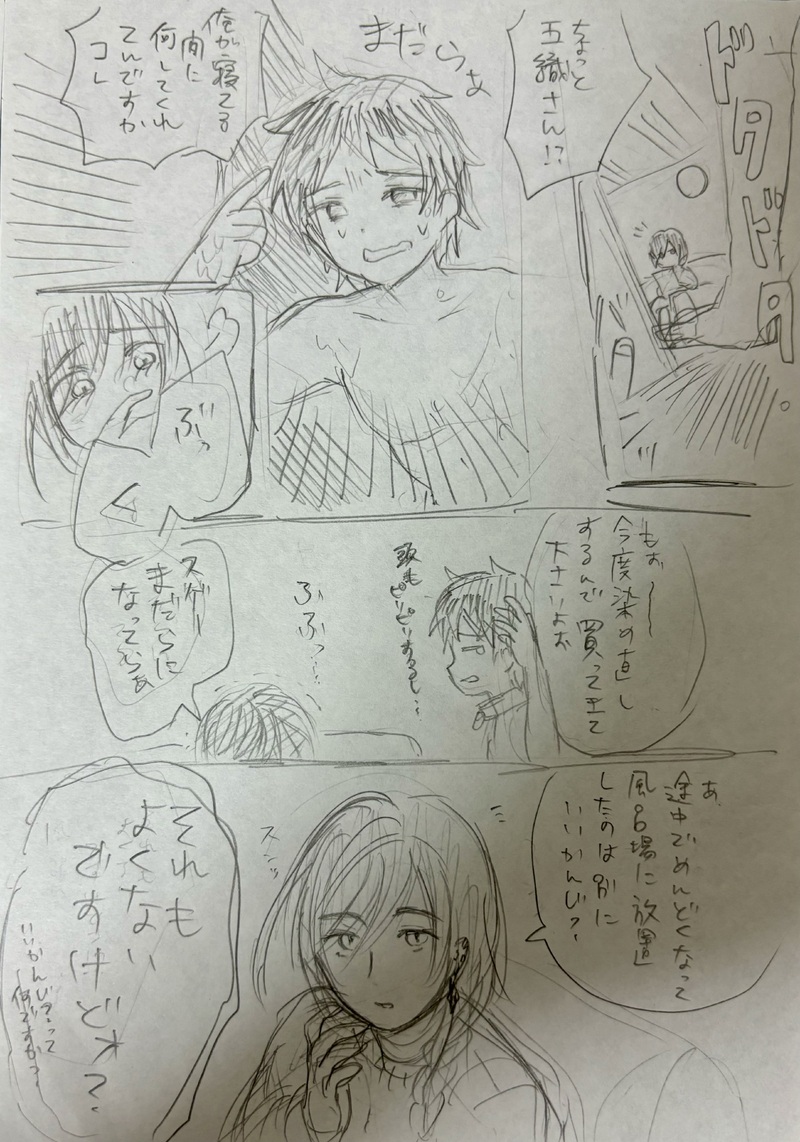 ドタドタ
ちょっと
五織さん!?
まだらぁ
俺が寝てる
間に
何してくれ
てんですか
コレ
ぶっ
く
もぉ〜
今度染め直し
するんで買ってきて
下さいよぉ
頭もピリピリするし…
ぶふっ…
スゲー
まだらに
なってらぁ
あ、
途中でめんどくなって
風呂場に放置
したのは別に
いいかんじ?
スンッ
それも
よくない
ですけど?
いいかんじ?って
何ですか?